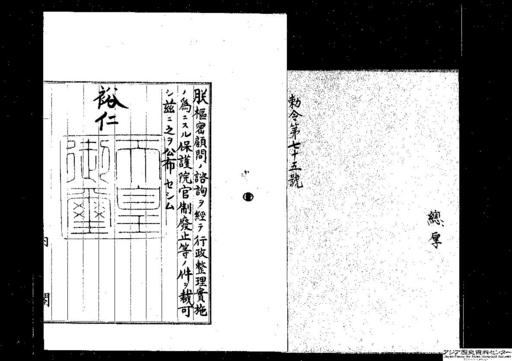 總厚
勅令第七十五號
朕樞密顧問ノ諮詢ヲ經テ行政整理實施
ノ爲ニスル保護院官制廢止等ノ件ヲ裁可
シ茲ニ之ヲ公布セシム
裕仁
天皇
御璽
内閣
アジア歴史資料センター